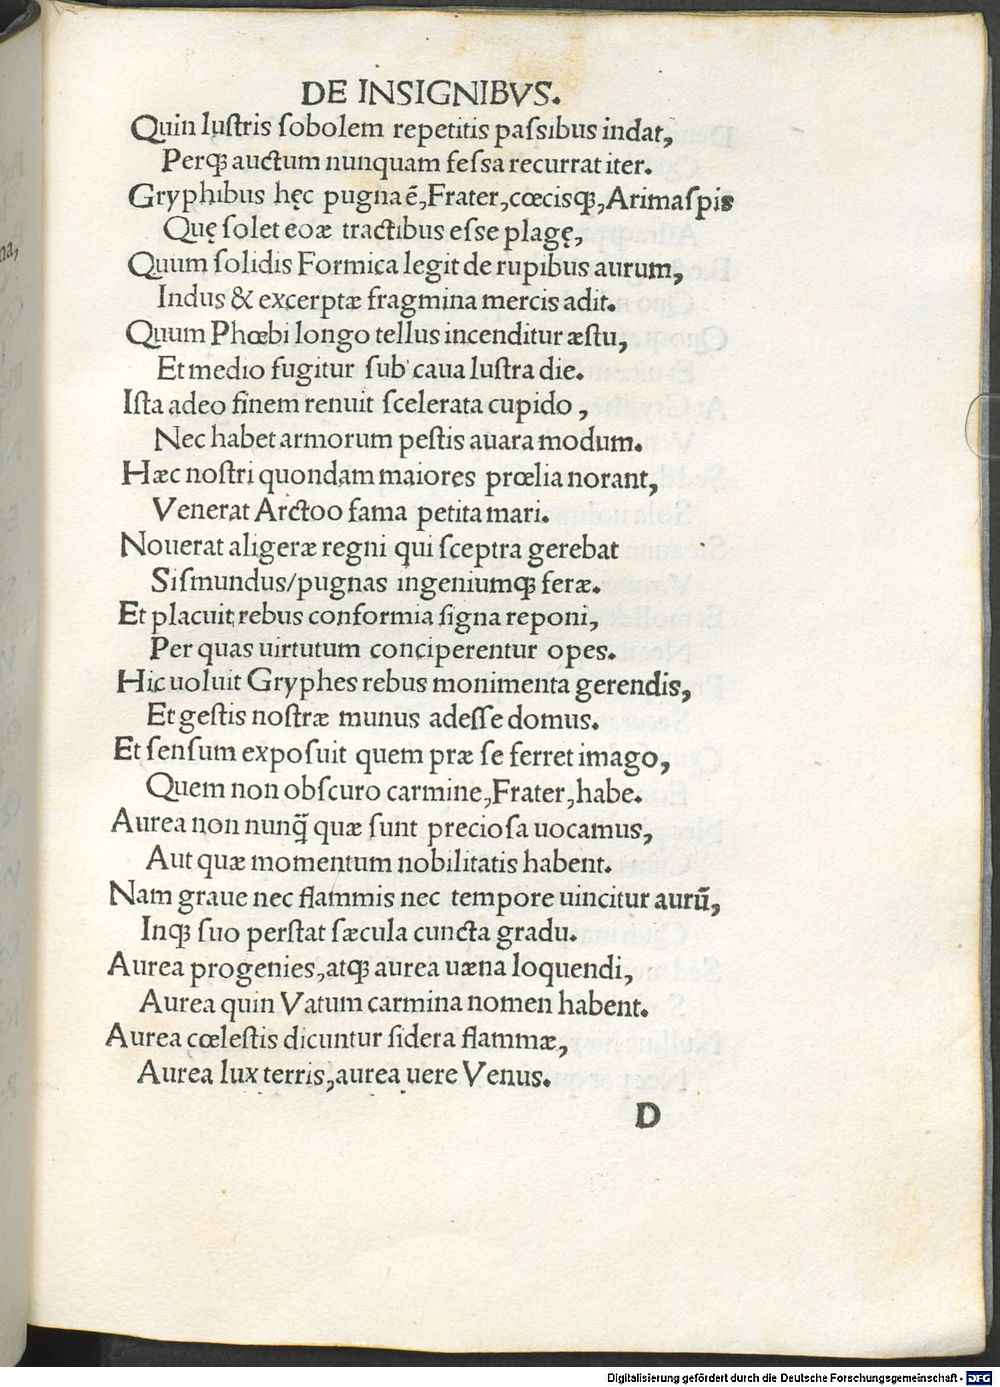 DE INSIGNIBVS.
Quin lustris sobolem repetitis passibus indat,
Perqꝫ auctum nunquam fessa recurrat iter.
Gryphibus hęc pugna ē, Frater, cœcisqꝫ, Arimaspis
Quę solet eoæ tractibus esse plagę,
Quum solidis Formica legit de rupibus aurum,
Indus & excerptæ fragmina mercis adit.
Quum Phœbi longo tellus incenditur æstu,
Et medio fugitur sub caua lustra die.
Ista adeo finem renuit scelerata cupido,
Nec habet armorum pestis auara modum.
Hæc nostri quondam maiores prœlia norant,
Venerat Arctoo fama petita mari.
Nouerat aligeræ regni qui sceptra gerebat
Sismundus/pugnas ingeniumqꝫ feræ.
Et placuit rebus conformia signa reponi,
Per quas uirtutum conciperentur opes.
Hic uoluit Gryphes rebus monimenta gerendis,
Et gestis nostræ munus adesse domus.
Et sensum exposuit quem præ se ferret imago,
Quem non obscuro carmine, Frater, habe.
Aurea non nunq̃ quæ sunt preciosa uocamus,
Aut quæ momentum nobilitatis habent.
Nam graue nec flammis nec tempore uincitur aurũ,
Inqꝫ suo perstat sæcula cuncta gradu.
Aurea progenies, atqꝫ aurea uæna loquendi,
Aurea quin Vatum carmina nomen habent.
Aurea cœlestis dicuntur sidera flammæ,
Aurea lux terris, aurea uere Venus.
D
Digitalisierung gefördert durch die Deutsche Forschungsgemeinschaft - DFG